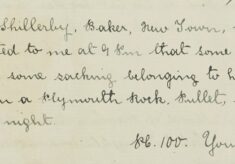 Shillerby, Baker, New Town,
ted to me at 9 P.m that some
some sacking belonging to h
n a Plymouth Rock, Pullet,
night.
P.C. 100. You